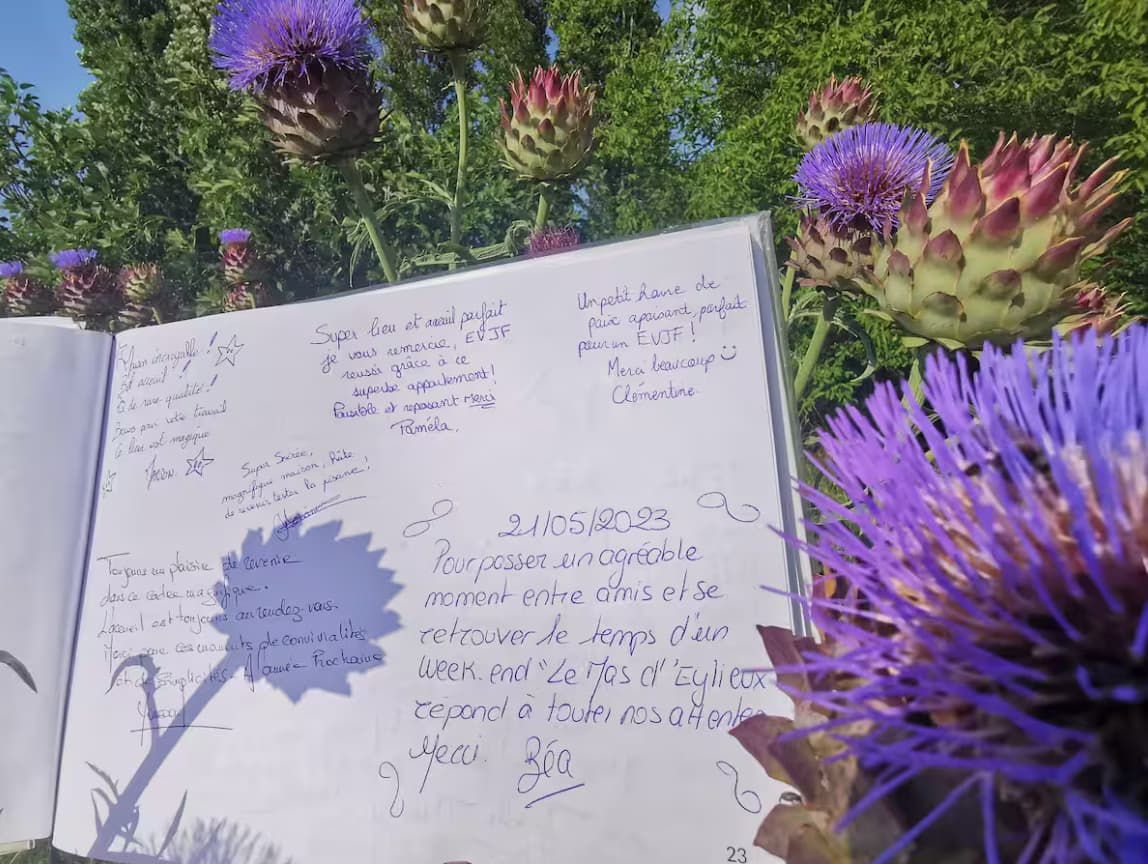 incroyable !
accueil !
de rare qualité !
pour votre travail
lieu est magique
Super lieu et accueil parfait
je vous remercie, EVJF
réussi grâce à ce
superbe appartement !
Paisible et reposant Merci
Paméla.
Un petit havre de
paix apaisant, parfait
pour un EVJF !
Merci beaucoup
Clémentine.
Super Soirée,
magnifique maison, hâte
de revenir tester la piscine !
Toujours un plaisir de revenir
dans ce cadre magnifique.
L'accueil est toujours au rendez-vous.
Merci pour ces moments de convivialités
et de simplicités. A l'année Prochaine
21/05/2023
Pour passer un agréable
moment entre amis et se
retrouver le temps d'un
week.end "Le Mas d'Eylieux
répond à toutes nos attentes
Merci. Béa
23